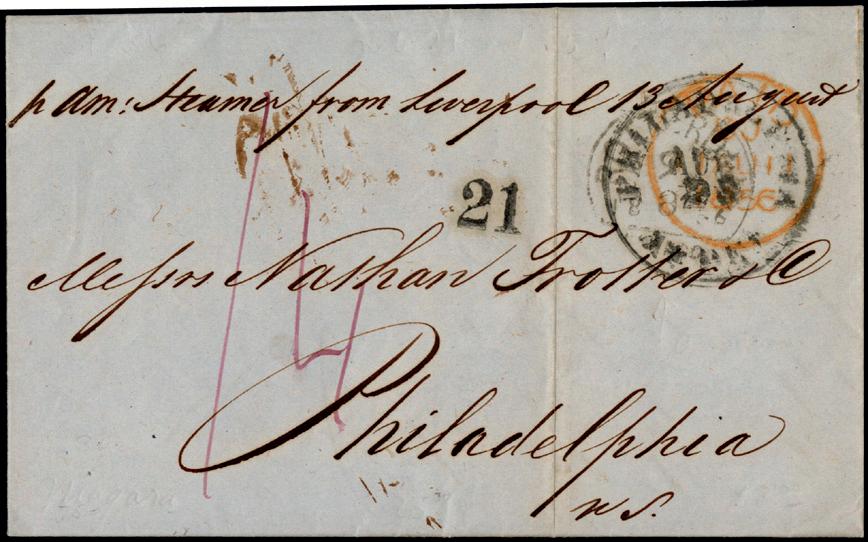 p Am: Steamer from Liverpool 13 August
21
PHILADELPHIA
AUG
1856
Messrs Nathan Trotter & Co
14
Philadelphia
U S.
Niagara